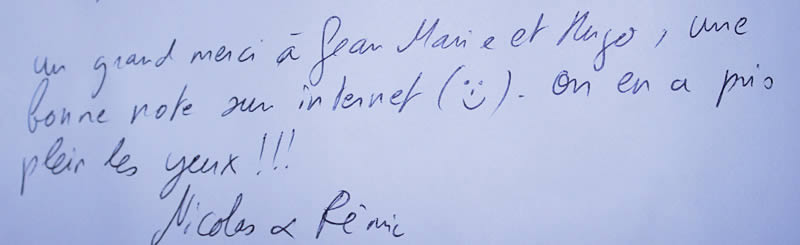 un grand merci à Jean Marie et Hugo, une
bonne note sur internet (☺). On en a pris
plein les yeux !!!
Nicolas & Rémic